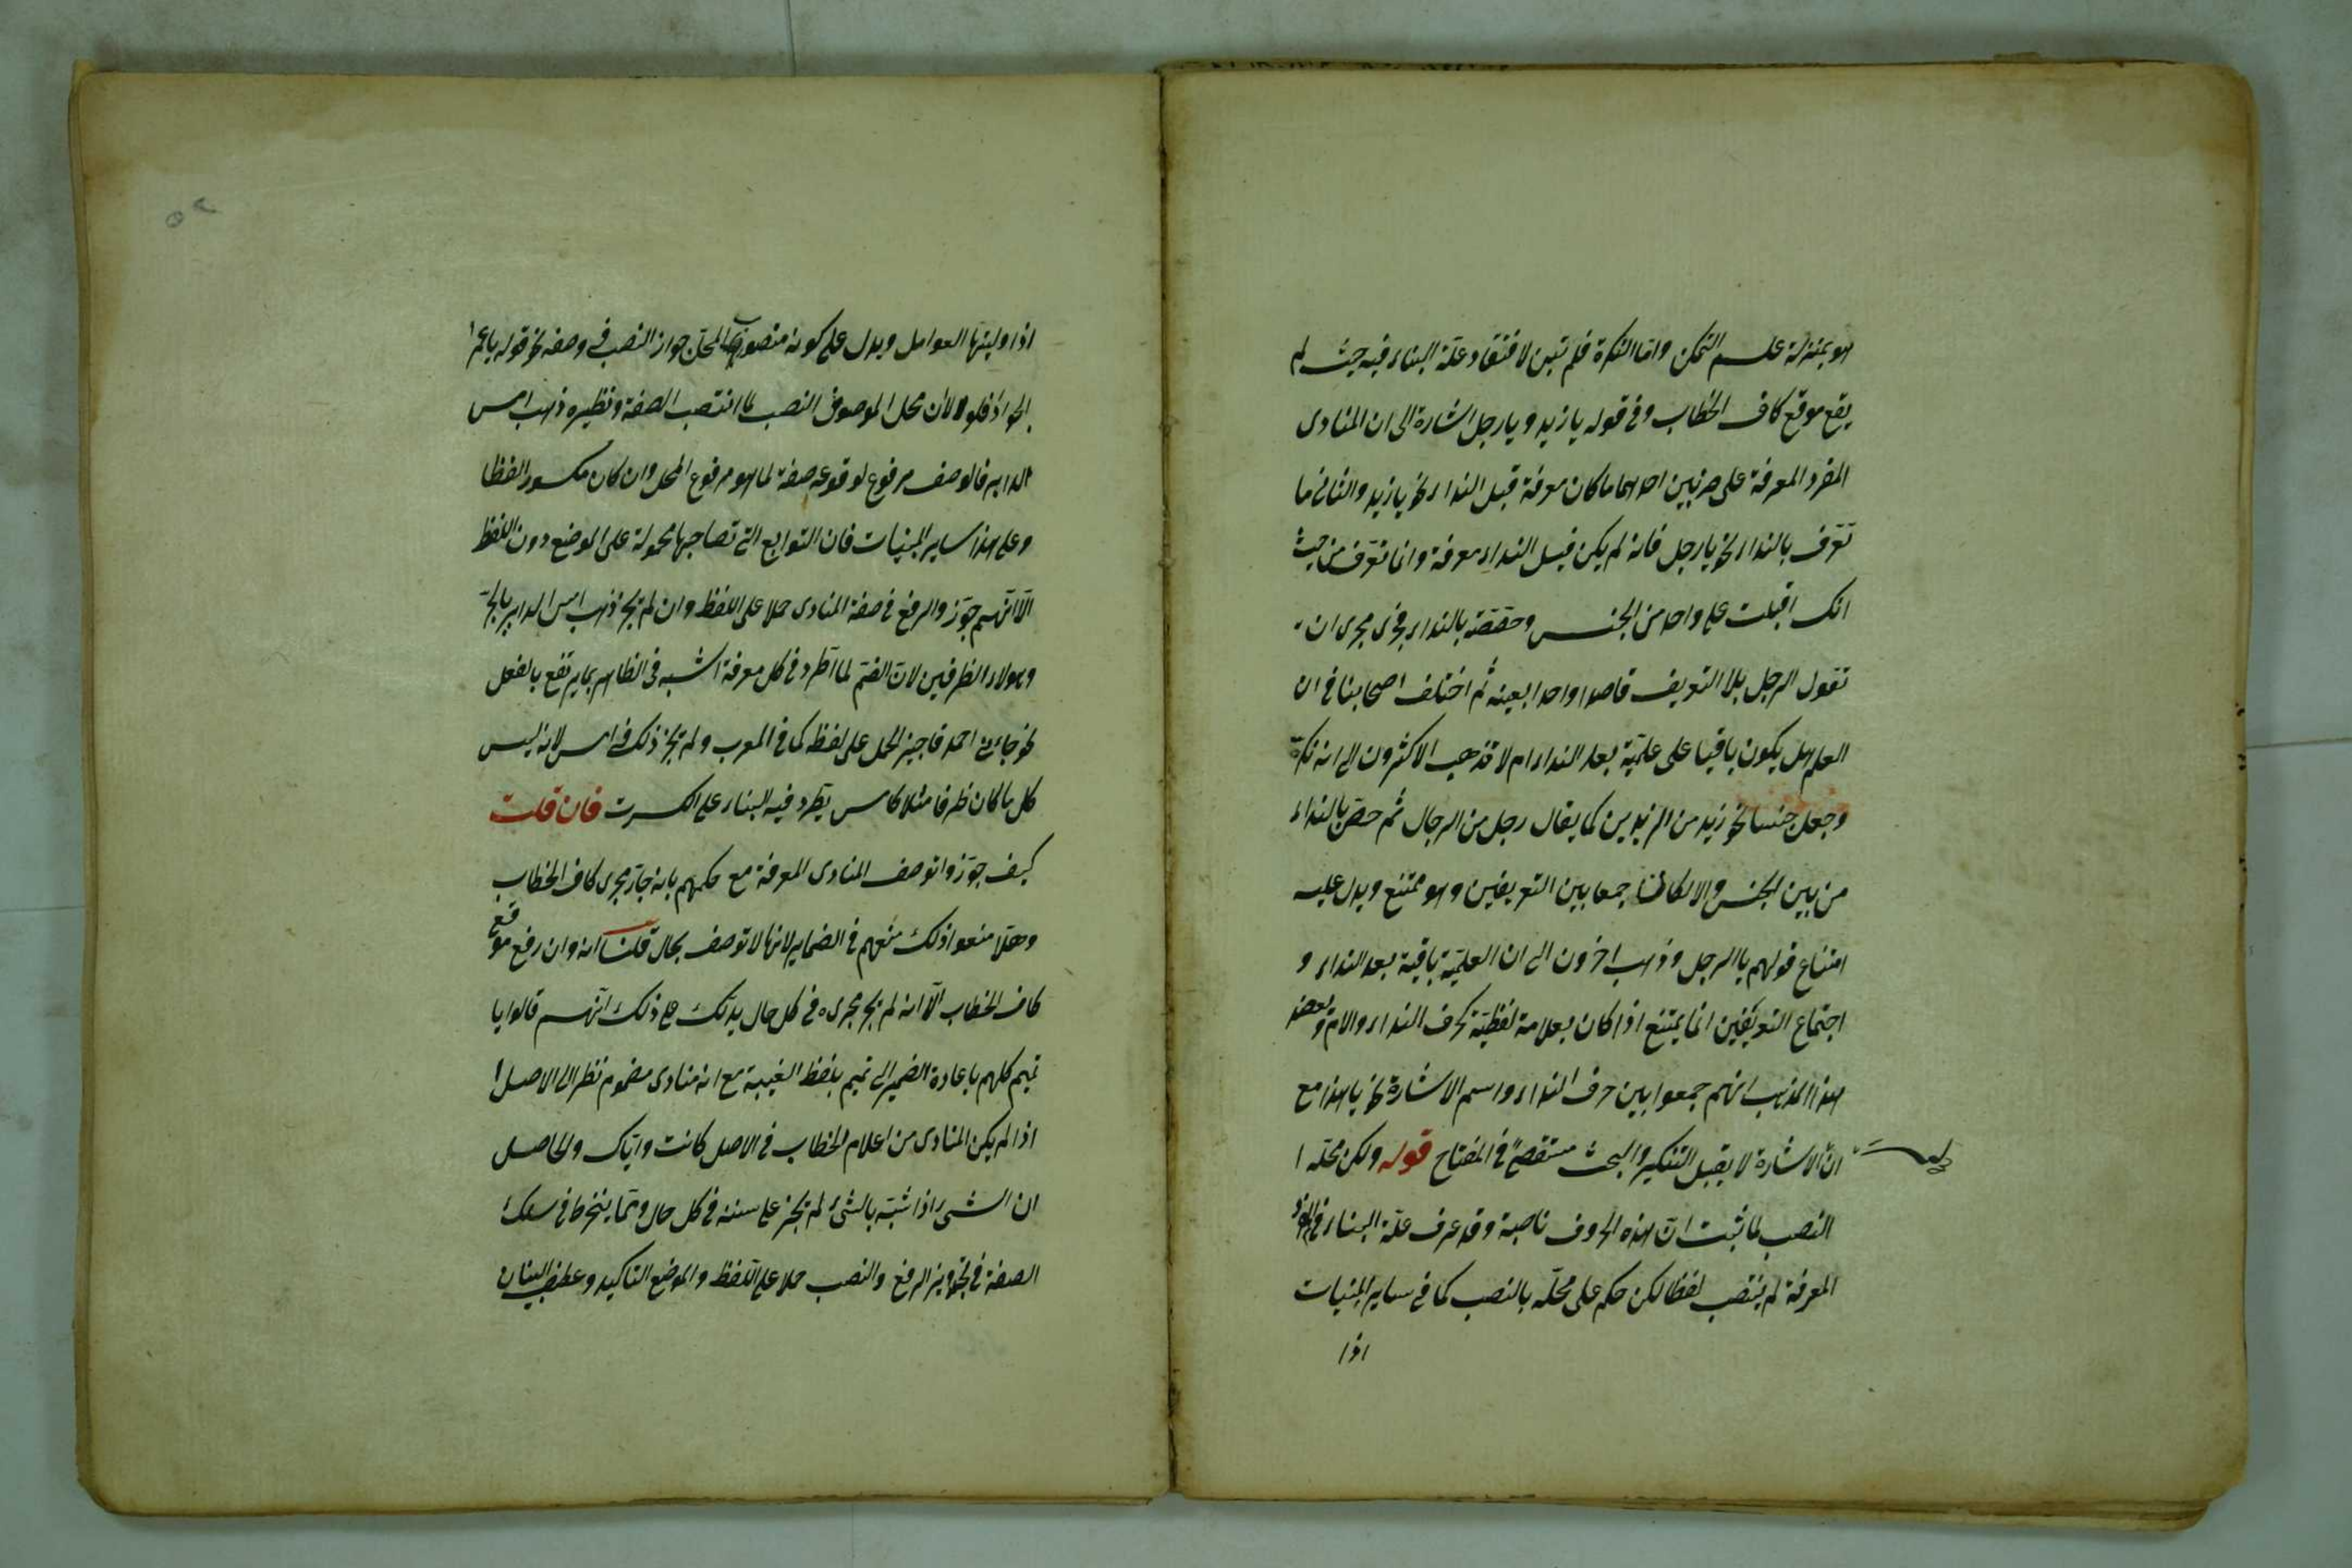 هو بمنزلة علم التمكن واما النكرة فلم تبن لافتقاد علة البناء فيه حيث لم
يقع موقع كاف الخطاب وفى قوله يا زيد ويا رجل اشارة الى ان المنادى
المفرد المعرفة على ضربين احدهما ما كان معرفة قبل النداء نحو يا زيد والثانى ما
تعرّف بالنداء نحو يا رجل فانه لم يكن قبل النداء معرفة وانما تعرّف من حيث
انك اقبلت على واحد من الجنس وخصّصته بالنداء فجرى مجرى ان
تقول الرجل بلا التعريف قاصدا واحدا بعينه ثم اختلف اصحابنا فى ان
العلم هل يكون باقيا على علميّته بعد النداء ام لا فذهب الاكثرون الى انه نكرة
وجعل جنسا نحو زيد من الزيدين كما يقال رجل من الرجال ثم خصّ بالنداء
من بين الجنس والا لكان جمعا بين التعريفين وهو ممتنع ويدل عليه
امتناع قولهم يا الرجل وذهب اخرون الى ان العلميّة باقية بعد النداء و
اجتماع التعريفين انما يمتنع اذا كان بعلامة لفظيّة كحرف النداء والام
هذا المذهب انهم جمعوا بين حرف النداء واسم الاشارة نحو يا هذا مع
انّ الاشارة لا يقبل التنكير والبحث مستقصىً فى المفتاح قوله ولكن محلّه ا
النصب لما ثبت انّ هذه الحروف ناصبة وقد عرف علّة البناء فى المفرد
المعرفة لم ينتصب لفظا لكن حكم على محلّه بالنصب كما فى ساير المبنيات
اذا
اذا وليتها العوامل ويدل على كونه منصوب المحل جواز النصب فى وصفه نحو قوله يا عمر
الجوادا فلولا ان محل الموصوف النصب لما انتصب الصفة ونظيره ذهب امس
الدابر فالوصف مرفوع لوقوعه صفة لما هو مرفوع المحل وان كان مكسور الفظا
وعلى هذا ساير المبنيات فان التوابع التى تصاحبها محمولة على الموضع دون اللفظ
الّا انّهم جوّزوا الرفع فى صفة المنادى حملا على اللفظ وان لم يجز ذهب امس الدابر بالجرّ
وهولاء الظرفين لانّ الضمّ لما اطّرد فى كل معرفة اشبه فى الظاهر بما يرتفع بالفعل
نحو جاءنى احمد فاجيز الحمل على لفظه كما فى المعرب ولم يجز ذلك فى امس لانه ليس
كل ما كان ظرفا مثلا كامس يطّرد فيه البناء على الكسرت فان قلت
كيف جوّزوا توصف المنادى المعرفة مع حكمهم بانه جار مجرى كاف الخطاب
وهلّا منعوا ذلك منعهم فى الضماير لانها لا توصف بحال قلنا انه وان رفع موقع
كاف الخطاب الّا انه لم يجر مجراه فى كل حال يدلّك على ذلك انّهم قالوا يا
تيم كلهم باعادة الضمير الى تميم بلفظ الغيبة مع انه منادى مضموم نظرا الى الاصل ا
اذا لم يكن المنادى من اعلام الخطاب فى الاصل كانت واياك والحاصل
ان الشىء اذا شبّه بالشىء لم يجز على سننه فى كل حال ومما ينخرط فى سلك
الصفة فى تجويز الرفع والنصب حملا على اللفظ والموضع التاكيد وعطف البيان